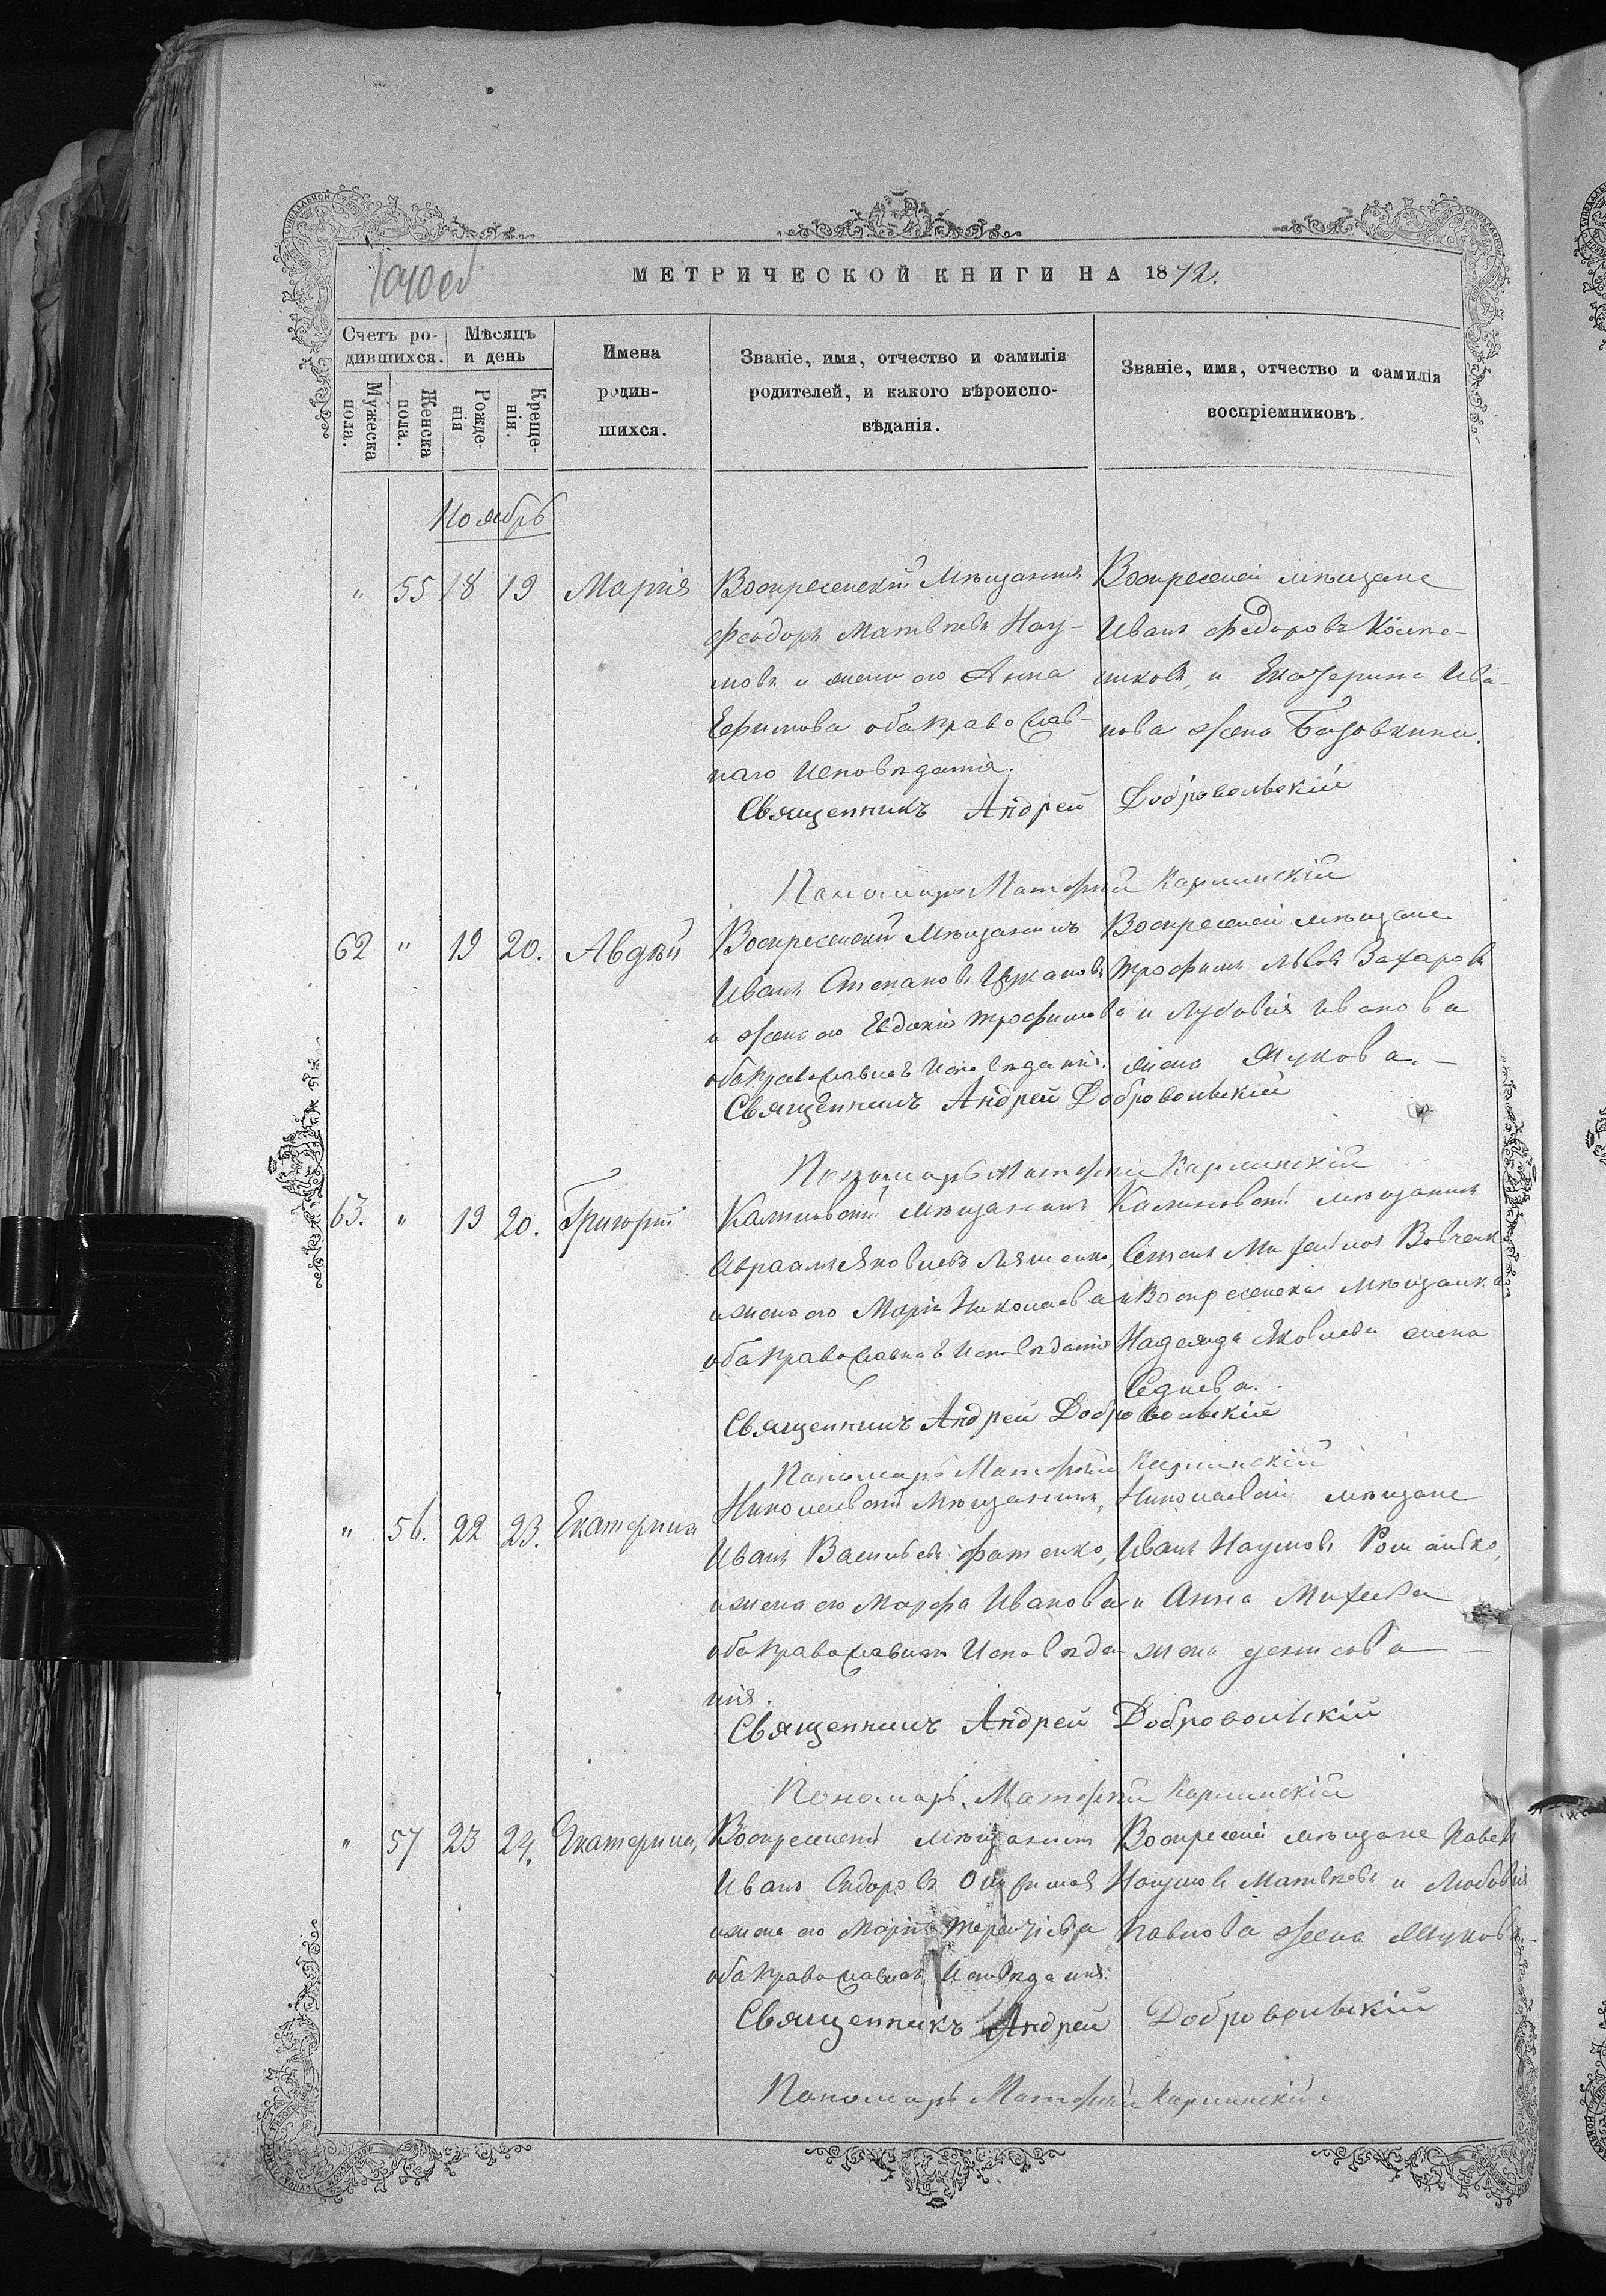 МЕТРИЧЕСКОЙ КНИГИ НА 1872.
Счетъ ро-
дившихся.
Мужеска пола.
Женска пола.
Мѣсяцъ
и день
Рожде-
нія
Креще-
нія.
Имена
родив-
шихся.
Званіе, имя, отчество и фамилія
родителей, и какого вѣроиспо-
вѣданія.
Званіе, имя, отчество и фамилія
воспріемниковъ.
Ноябрь
" 55 18 19 Марія
Воскресенскій Мѣщанинъ
Феодоръ Матвѣевъ Нау-
мовъ и жена его Анна
Ефимова оба Православ-
наго Исповѣданія.
Воскресенскіе мѣщане
Иванъ Федоровъ
и Екатерина Ива-
нова жена
Священникъ Андрей Добровольскій
Пономарь Матфей Карминскій
62 " 19 20. Авдѣй
Воскресенскій Мѣщанинъ
Иванъ Степановъ Цукановъ
и жена его Евдокія Трофимова
оба Православнаго Исповѣданія.
Воскресенскіе мѣщане
Трофимъ Львовъ Захаровъ
и Любовія Иванова
жена Жукова.
Священникъ Андрей Добровольскій
Пономарь Матфей Карминскій
63. " 19 20. Григорій
Калиновскій мѣщанинъ
Авраамъ Яковлевъ Ляшенко,
и жена его Марія Николаева
оба Православнаго Исповѣданія
Калиновскій мѣщанинъ
Михайловъ
и Воскресенская мѣщанка
Надежда Яковлева жена
Седнева.
Священникъ Андрей Добровольскій
Пономарь Матфей Карминскій
" 56. 22 23. Екатерина
Николаевскій Мѣщанинъ,
Иванъ Васильевъ Фатенко,
и жена его Марфа Иванова
оба Православнаго Исповѣда-
нія.
Николаевскіе мѣщане
Иванъ Наумовъ
и Анна Михеева
жена
Священникъ Андрей Добровольскій
Пономарь Матфей Карминскій
" 57 23 24. Екатерина,
Воскресенскій мѣщанинъ
Иванъ Сидоровъ
и жена его Марія Терентіева
оба Православнаго Исповѣданія.
Воскресенскіе мѣщане Павелъ
Наумовъ Матвѣевъ и Любовія
Павлова жена Жукова
Священникъ Андрей Добровольскій
Пономарь Матфей Карминскій